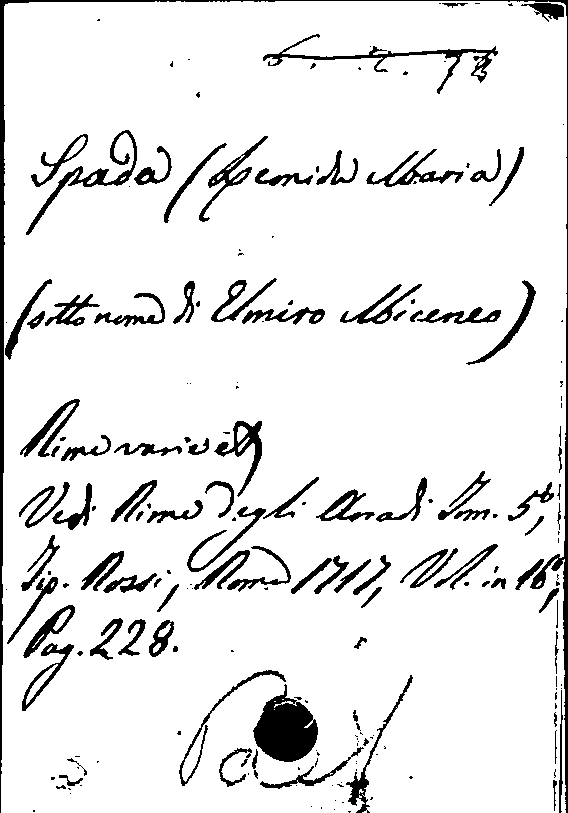 Spada (Artemidia Maria)
(sotto nome di Elmiro Miceneo)
Rime varie
Vedi Rime degli Arcadi Tom. 5º,
Tip. Rossi, Roma 1717, Vol. in 16º,
Pag. 228.